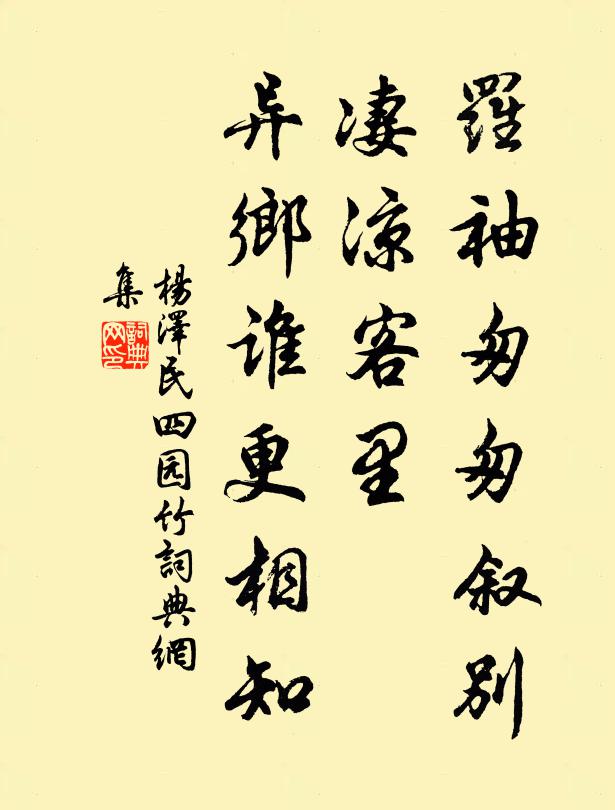 羅袖匆匆叙别
凄涼客里
异鄉谁更相知
楊澤民四园竹詞典網
集
詞典网印